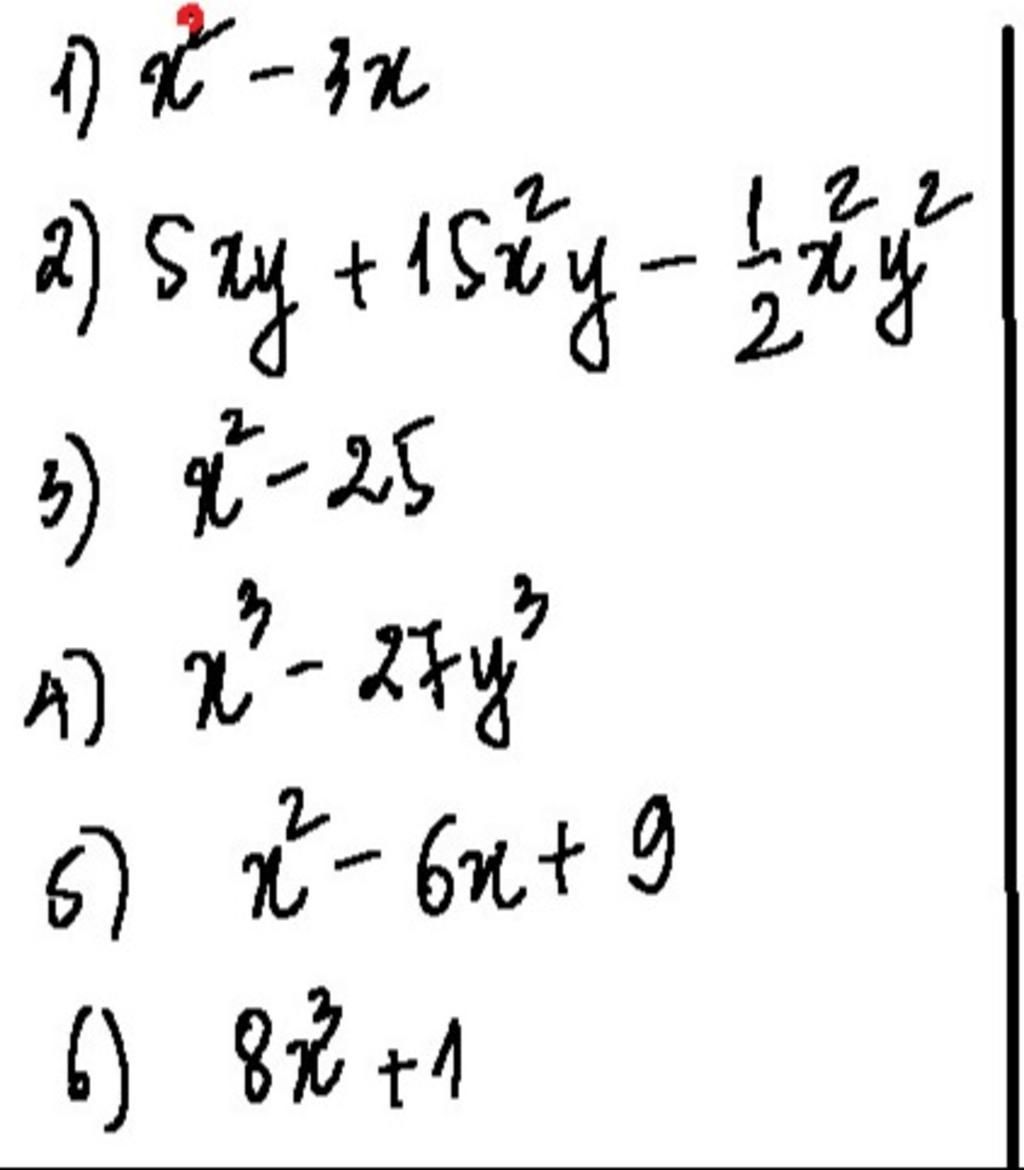 1) x² - 3x
2) 5xy + 15x²y - 1/2 x²y²
3) x² - 25
4) x³ - 27y³
5) x² - 6x + 9
6) 8x³ + 1